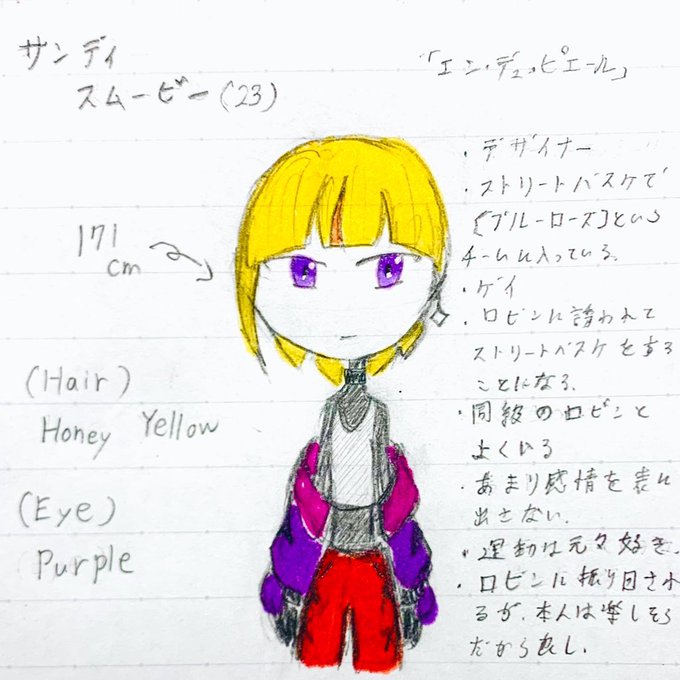 サンディ
スムービー(23)
「エン・デュ・ピエール」
171
cm
(Hair)
Honey Yellow
(Eye)
Purple
・デザイナー
・ストリートバスケで
《ブルーローズ》という
チームに入っている。
・ゲイ
・ロビンに誘われて
ストリートバスケをする
ことになる。
・同級のロビンと
よくいる
・あまり感情を表に
出さない。
・運動は元々好き。
・ロビンに振り回され
るが、本人は楽しそう
だから良し。